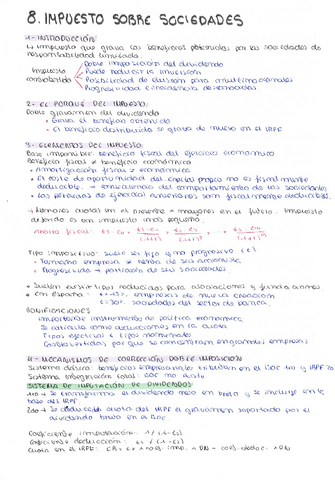 8. IMPUESTO SOBRE SOCIEDADES
1- INTRODUCCIÓN
↳ Impuesto que grava los beneficios obtenidos por las sociedades de
responsabilidad limitada.
Doble imposición del dividendo
Impuesto Puede reducir la inversión
controvertido Posibilidad de elusión para multinacionales
Progresividad e incidencia desconocidas
2- EL PORQUÉ DEL IMPUESTO:
Doble gravamen del dividendo
• Grava el beneficio obtenido
• El beneficio distribuido se grava de nuevo en el IRPF
3- ELEMENTOS DEL IMPUESTO:
Base imponible: beneficio fiscal del ejercicio económico
Beneficio fiscal ≠ beneficio económico
• Amortización fiscal ≠ económica
• El coste de oportunidad del capital propio no es fiscalmente
deducible. → consecuencia del comportamiento de las sociedades
• Las pérdidas de ejercicios anteriores son fiscalmente deducibles.
→ Menores cuotas en el presente = mayores en el futuro. Impuesto
diferido o con impuesto más pequeño
Ahorro fiscal:
Tipo impositivo: suele ser fijo y no progresivo (t)
• Tamaño empresa ≠ renta de sus accionistas
• Progresividad → partición de sus sociedades.
• Suelen existir tipos reducidos para asociaciones y fundaciones
• En España: empresas de nueva creación
sociedades del sector de banca
BONIFICACIONES
Importante instrumento de política económica
Se articula como deducciones en la cuota
Tipos efectivos < tipos nominales
Controvertidas, por que se concentran en grandes empresas
4- MECANISMOS DE CORRECCIÓN DOBLE IMPOSICIÓN
Sistema clásico: beneficios empresariales tributan en el
Sistema integración total:
SISTEMA DE IMPUTACIÓN DE DIVIDENDOS
1ro → Se transforma el dividendo neto en bruto y se incluye en la
base del IRPF.
2do → Se deduce de la cuota del IRPF el gravamen soportado por el
dividendo bruto en el
Coeficiente imputación: 1/(1-ts)
Coeficiente deducción: ts/(1-ts)
Cuota en el IRPF: